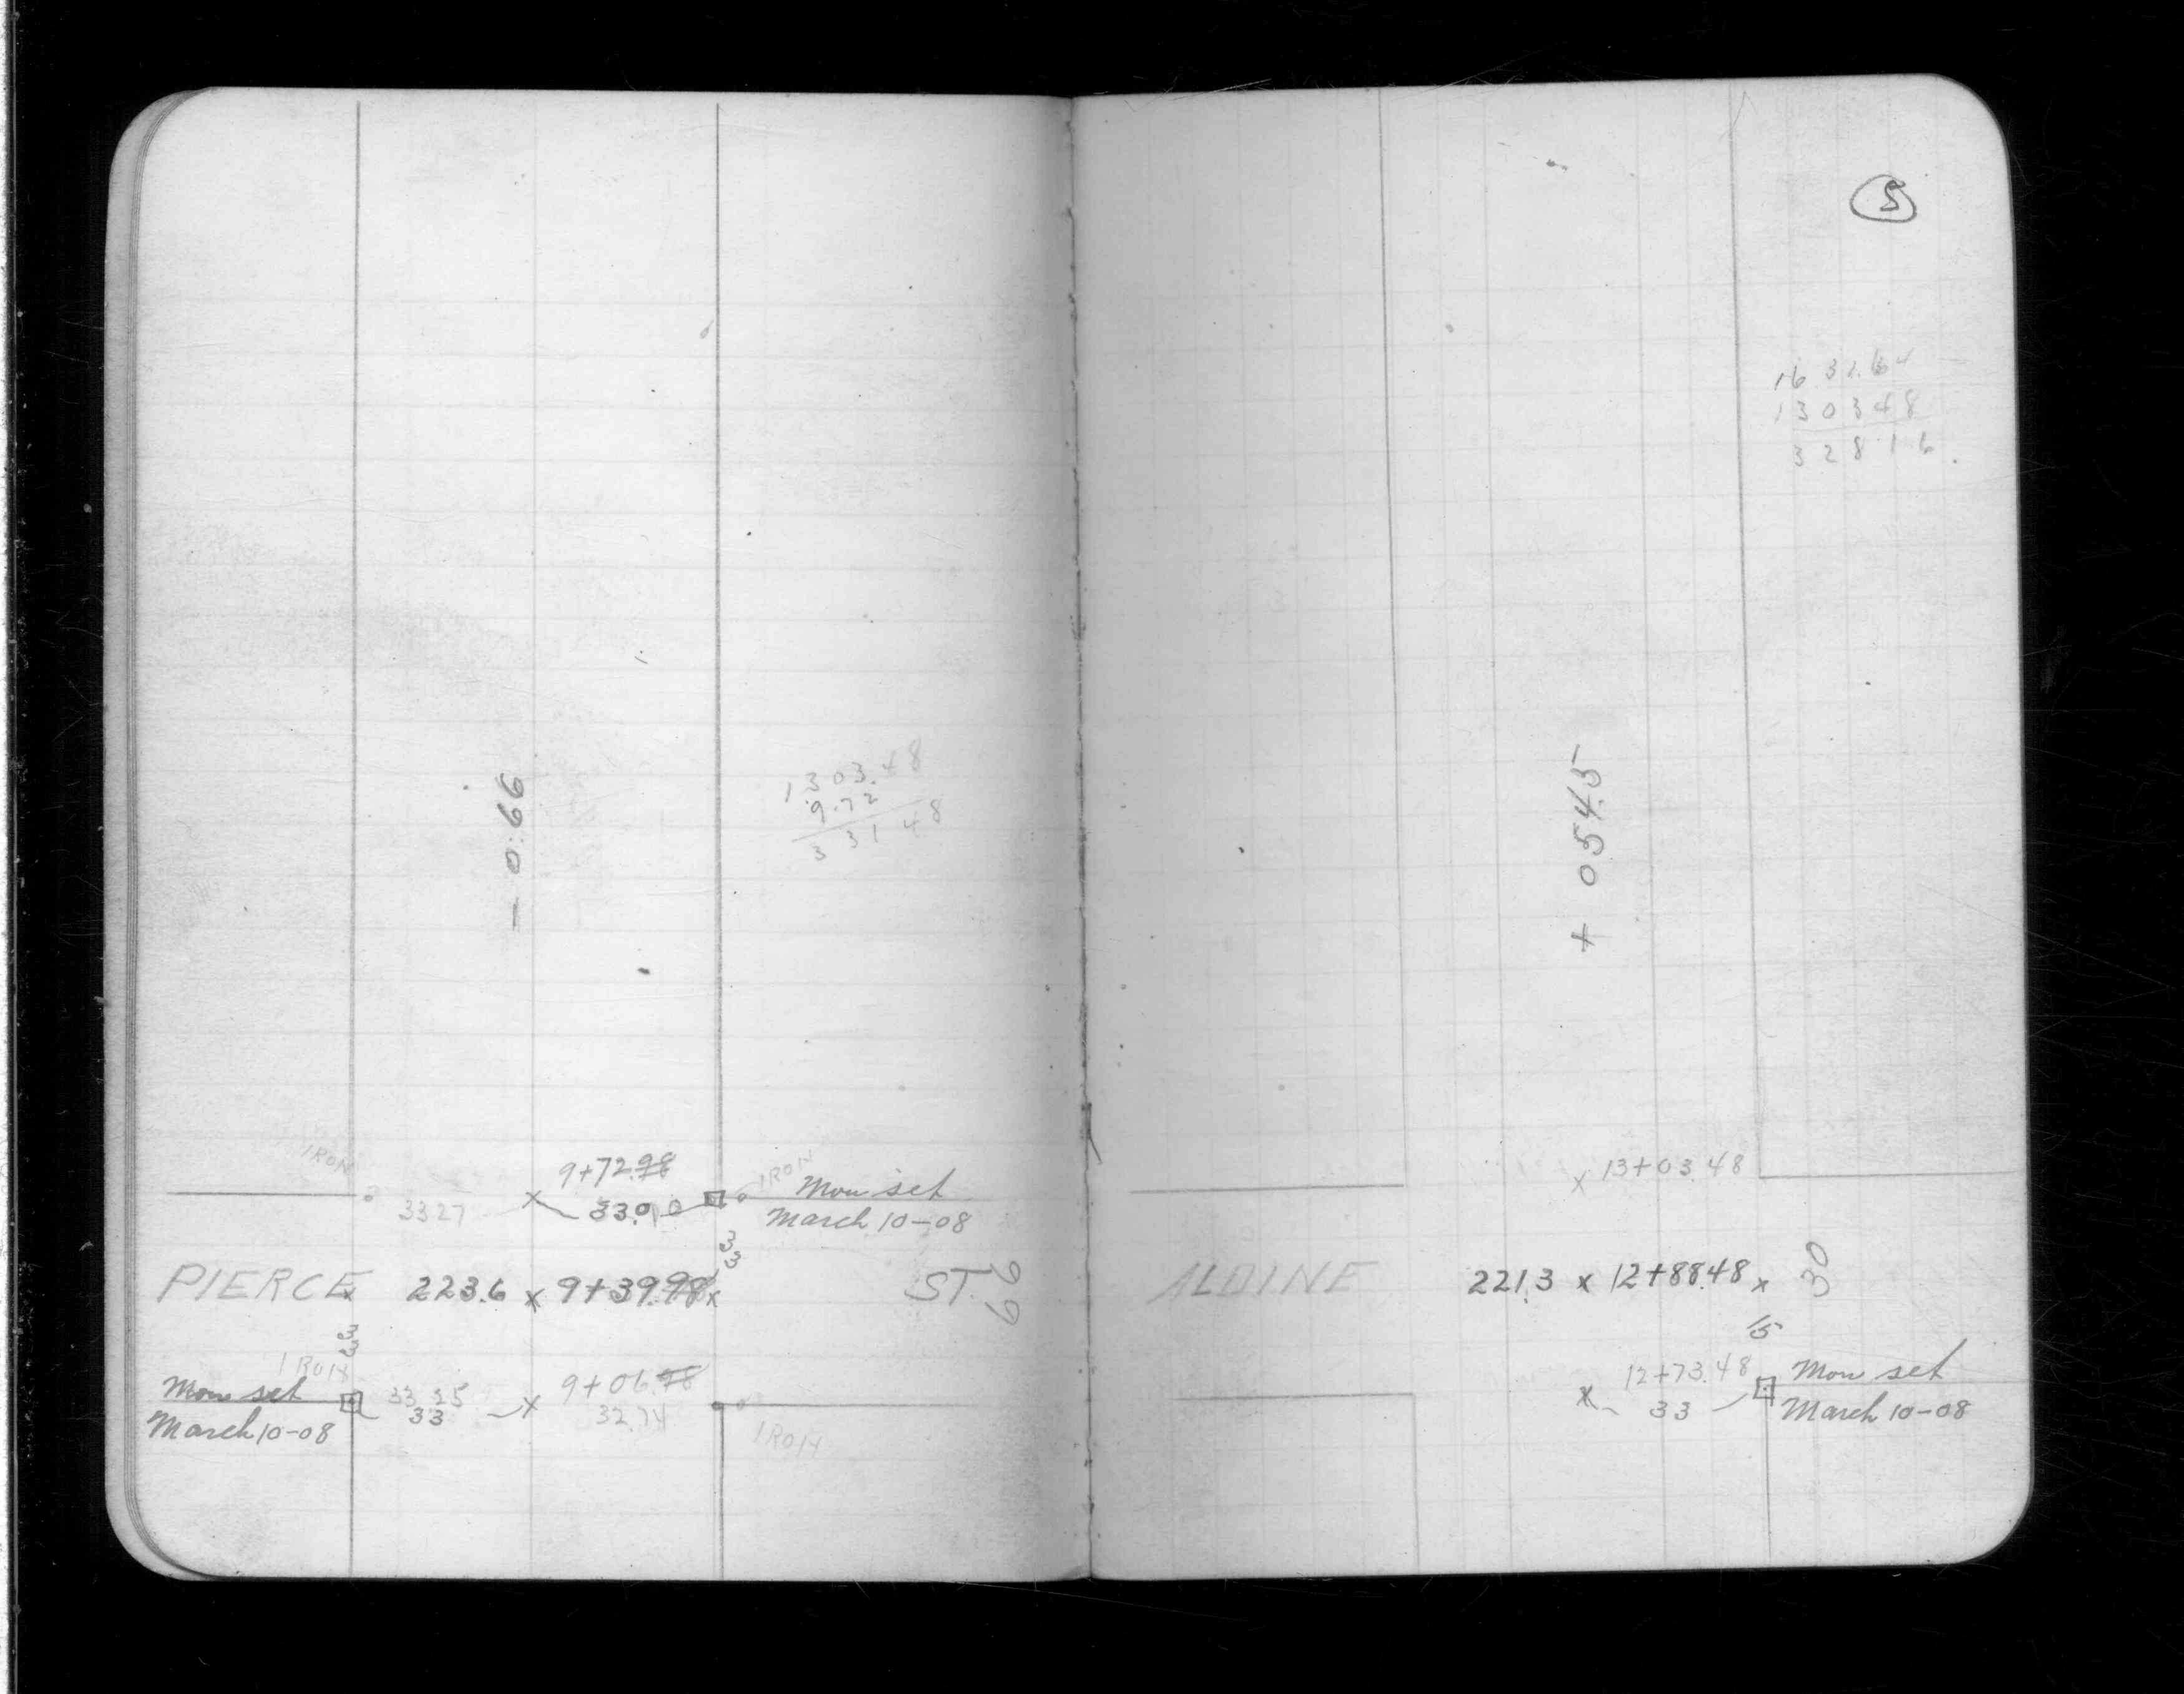 - 0.66
1303.48
9.72
331 48
IRON
9+72.98
IRON
3327
33.00
Mon set
March 10-08
33
PIERCE 223.6 x 9+39.98 x ST. 66
33
IRON
Mon set
March 10-08
33.25
33
x 9+06.98
32.74
IRON
5
16 31.64
130348
32816
+ 0545
x 13+03.48
ALDINE 221.3 x 12+88.48 x 30
15
12+73.48
x 33
Mon set
March 10-08